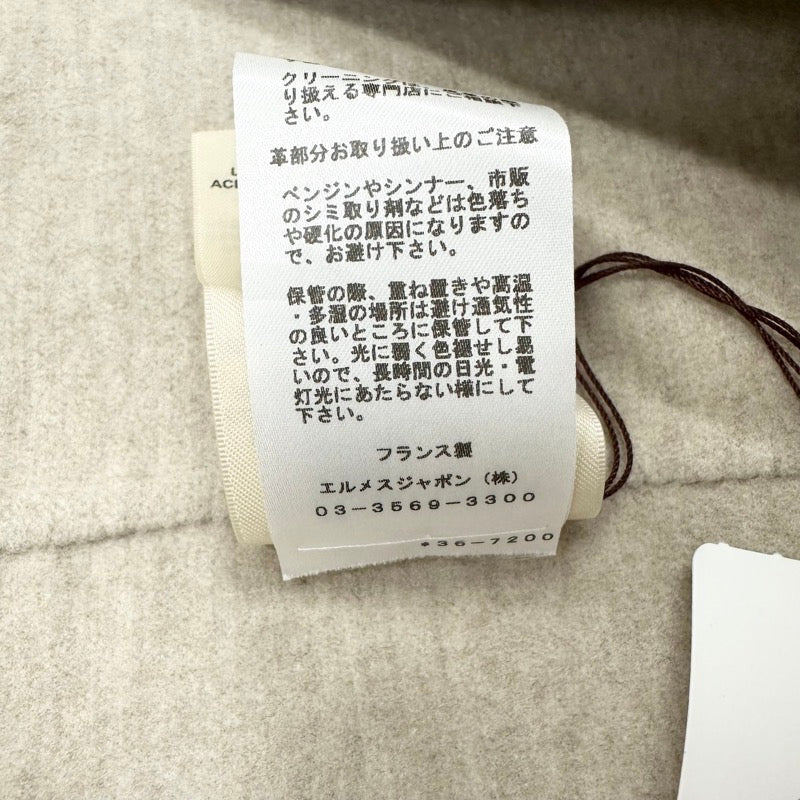 クリーニング
り扱える専門店にご相談下
さい。
革部分お取り扱い上のご注意
ベンジンやシンナー、市販
のシミ取り剤などは色落ち
や硬化の原因になりますの
で、お避け下さい。
保管の際、重ね置きや高温
・多湿の場所は避け通気性
の良いところに保管して下
さい。光に弱く色褪せし易
いので、長時間の日光・電
灯光にあたらない様にして
下さい。
フランス製
エルメスジャポン（株）
03-3569-3300
*36-7200